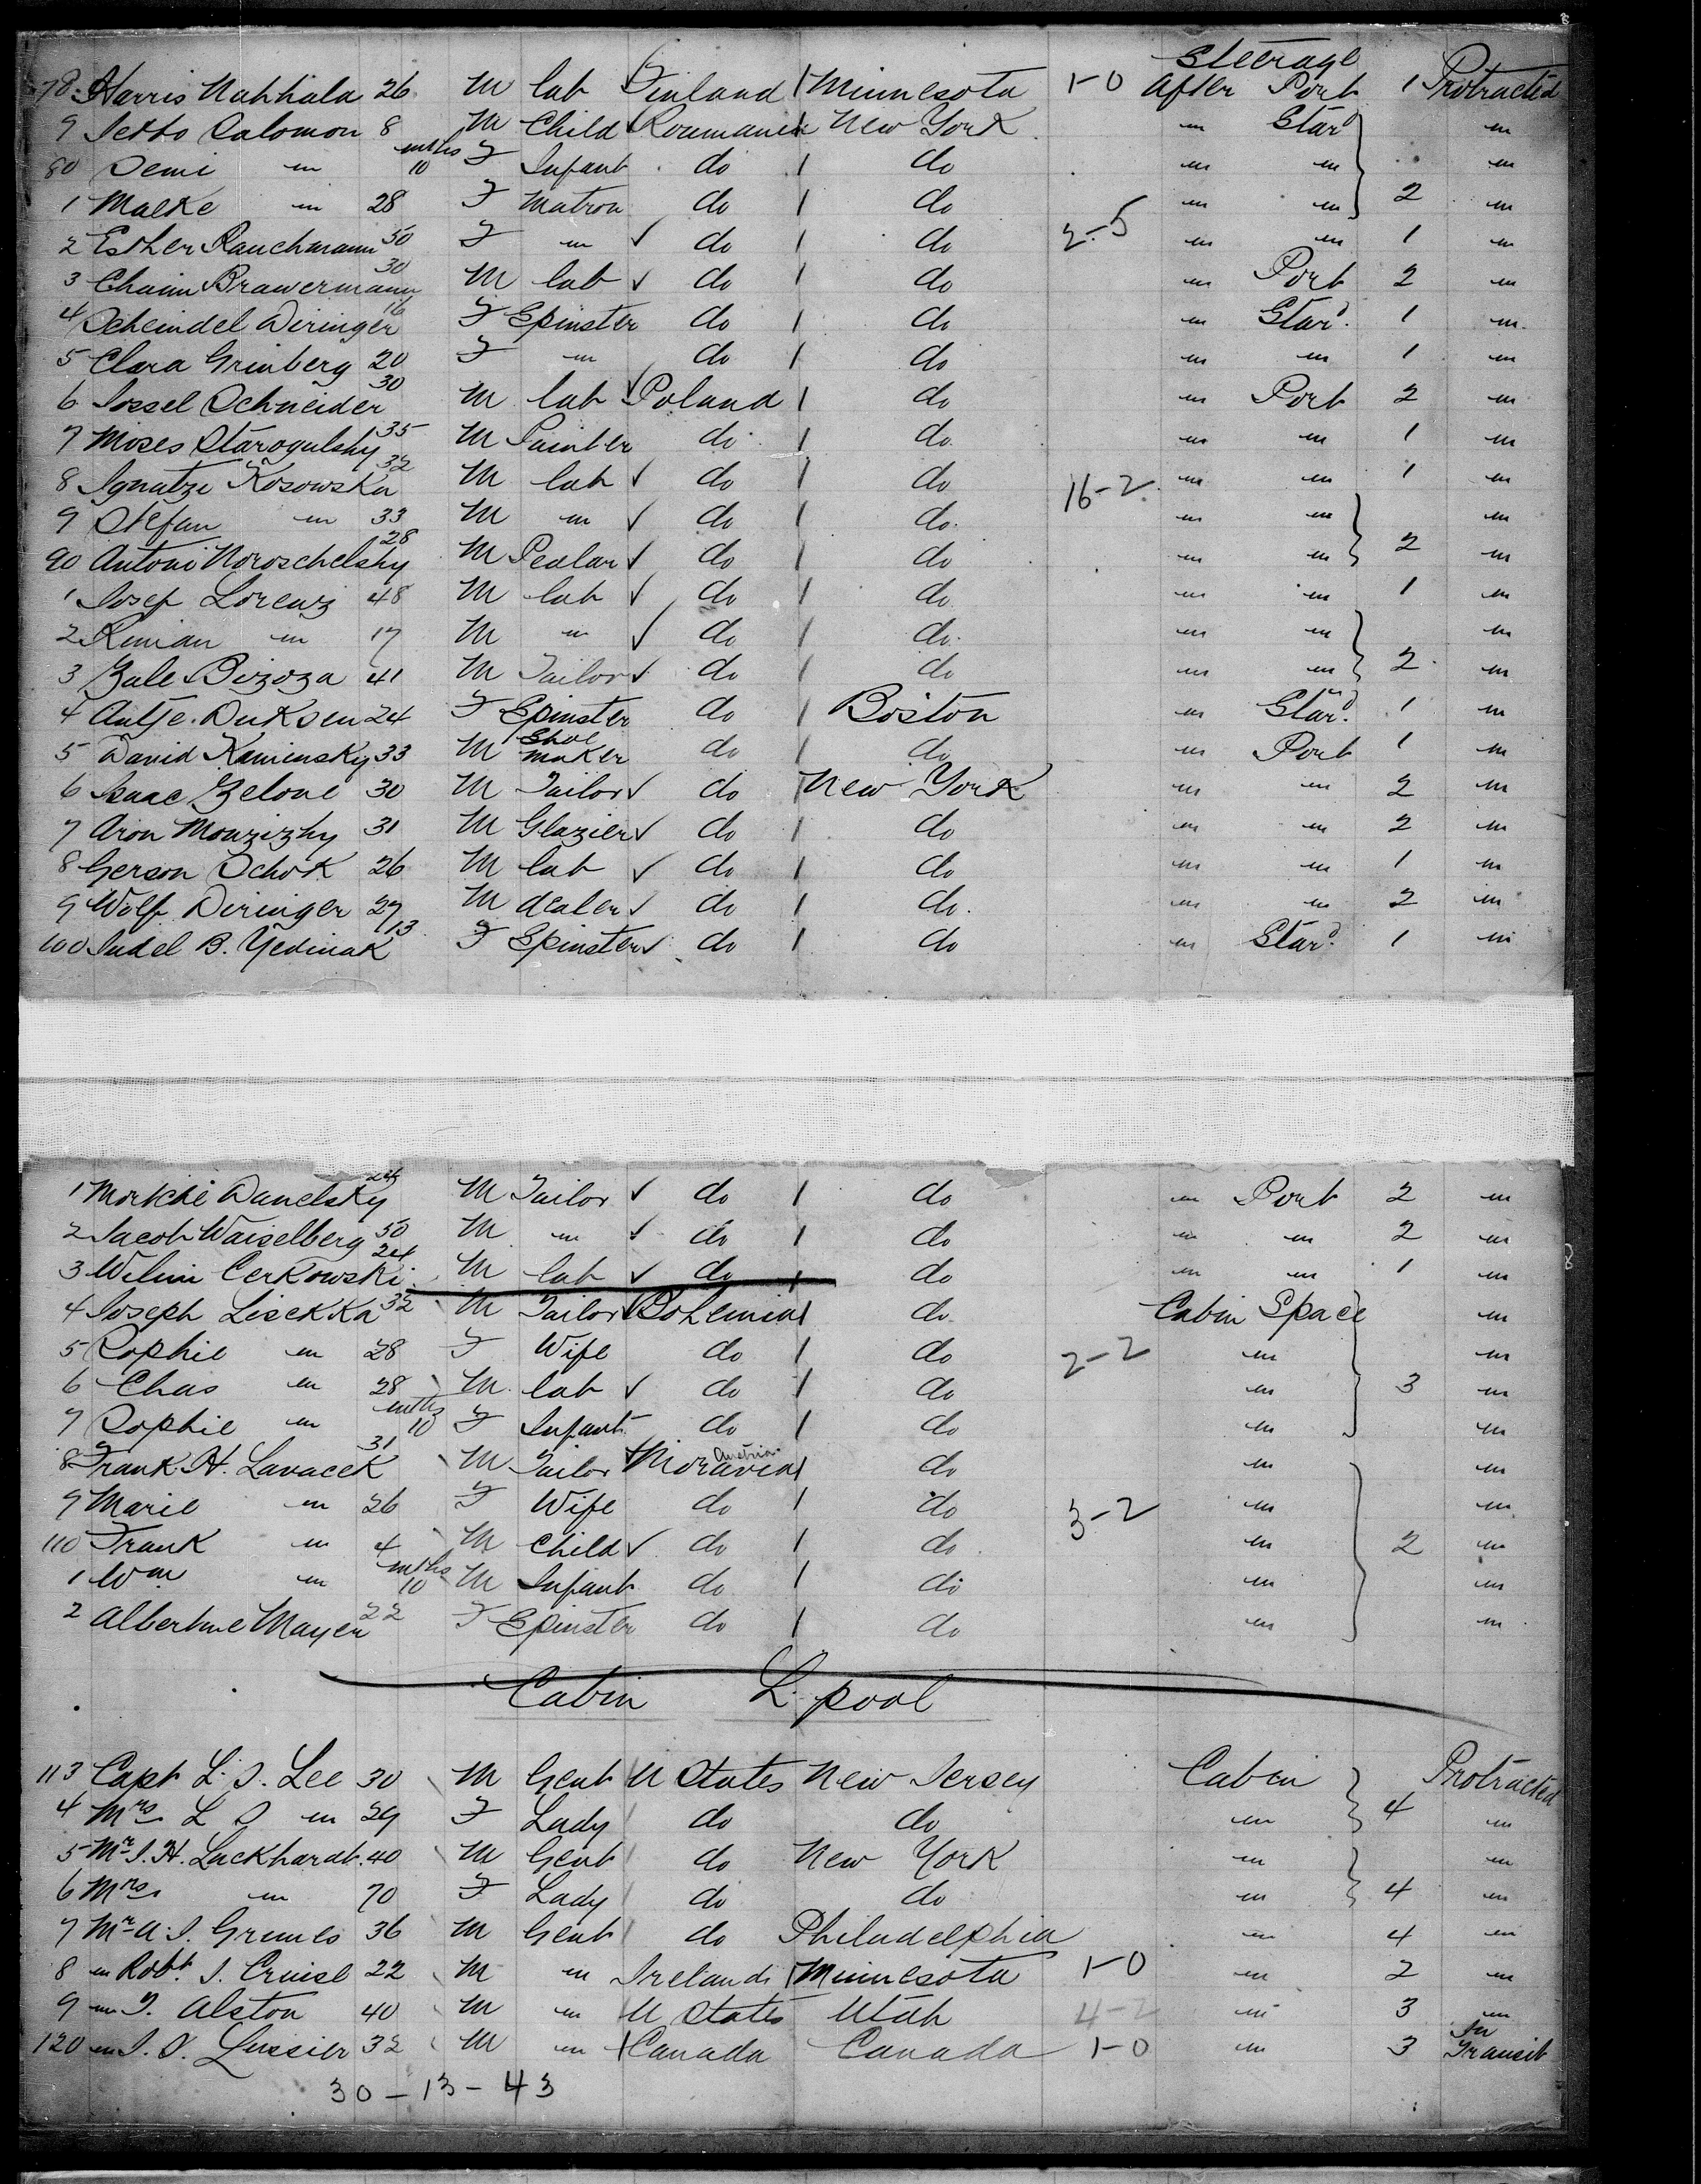 Steerage
78 Harris Nahkala 26 M lab Finland 1 Minnesota 1-0 After Port 1 Protracted
9 Jetto Salomon 8 M Child Roumania New York " Stard "
80 Demi " mths 10 F Infant do 1 do " " "
1 Malke " 28 F Matron do 1 do " " 2 "
2 Esther Rauchmann 50 F " ✓ do 1 do 2-5 " " 1 "
3 Chaim Brawermann 30 M lab ✓ do 1 do " Port 2 "
4 Scheindel Diringer 16 F Spinster do 1 do " Stard. 1 "
5 Clara Grinberg 20 F " do 1 do " " 1 "
6 Jossel Schneider 30 M lab ✓ Poland 1 do " Port 2 "
7 Moses Starogulsky 35 M Painter do 1 do " " 1 "
8 Ignatze Kosowska 32 M lab ✓ do 1 do 16-2 " " 1 "
9 Stefan " 33 M " ✓ do 1 do " " "
90 Antoni Noroschelsky 28 M Pedlar ✓ do 1 do " " 2 "
1 Josef Lorenz 48 M lab ✓ do 1 do " " 1 "
2 " 17 M " ✓ do 1 do " " "
3 Zale Bizoza 41 M Tailor ✓ do 1 do " " 2 "
4 Antje Duksen 24 F Spinster do 1 Boston " Stard. 1 "
5 David Kaminsky 33 M Shoe maker do 1 do " Port 1 "
6 Isaac Zelone 30 M Tailor ✓ do 1 New York " " 2 "
7 Aron Monzizhy 31 M Glazier ✓ do 1 do " " 2 "
8 Gerson Schok 26 M lab ✓ do 1 do " " 1 "
9 Wolf Diringer 27 M dealer ✓ do 1 do " " 2 "
100 Judel B. Yedinak 13 F Spinster ✓ do 1 do " Stard. 1 "
1 Morkhe Danelsky M Tailor ✓ do 1 do " Port 2 "
2 Jacob Waiselberg 50 M " ✓ do 1 do " " 2 "
3 Wilim Cerkowski 24 M lab ✓ do 1 do " " 1 "
4 Joseph Lisekka 32 M Tailor ✓ Bohemia 1 do Cabin Space "
5 Sophie " 28 F Wife do 1 do 2-2 " "
6 Chas " 28 M lab ✓ do 1 do " 3 "
7 Sophie " mths 10 F Infant do 1 do " "
8 Frank H. Lavacek 31 M Tailor ✓ Moravia Austria 1 do " "
9 Marie " 26 F Wife do 1 do 3-2 " "
110 Frank " 4 M Child ✓ do 1 do " 2 "
1 Wm " mths 10 M Infant do 1 do " "
2 Albertine Mayer 22 F Spinster do 1 do " "
Cabin L.pool
113 Capt L. S. Lee 30 M Gent U States New Jersey Cabin Protracted
4 Mrs L S " 29 F Lady do do " 4 "
5 Mr J. H. Luckhardt 40 M Gent do New York " "
6 Mrs " 70 F Lady do do " 4 "
7 Mr A. J. Grimes 36 M Gent do Philadelphia " 4 "
8 " Robt. J. Cruise 22 M " Ireland 1 Minnesota 1-0 " 2 "
9 " T. Alston 40 M " U States Utah 4-2 " 3 "
120 " J. S. Lussier 32 M " Canada Canada 1-0 " 3 In Transit
30-13-43